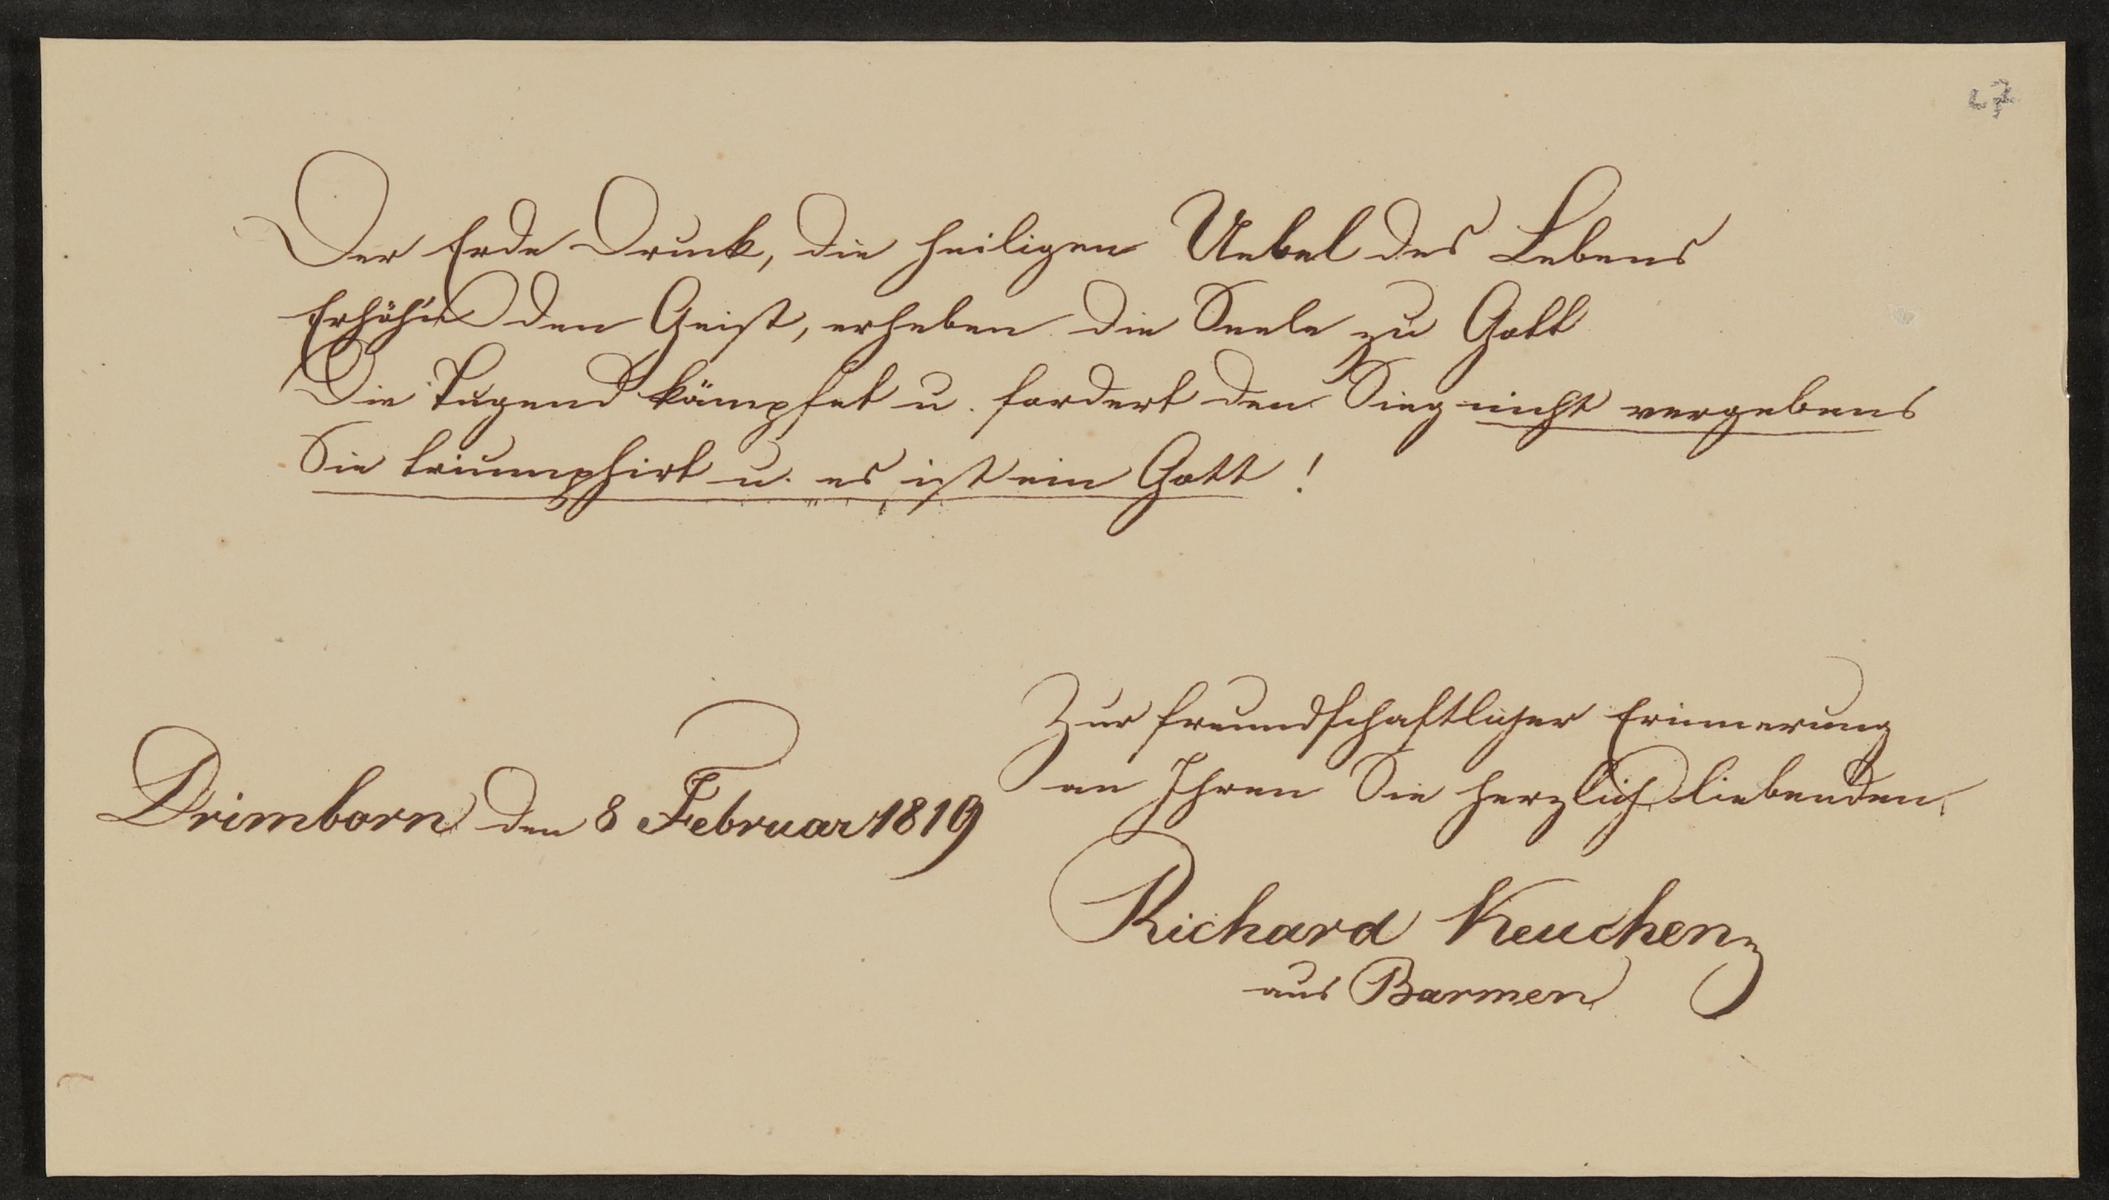 27
Der Erde Druck, die heiligen Uebel des Lebens
Erhöhn den Geist, erheben die Seele zu Gott
Die Tugend kämpfet u. fordert den Sieg nicht vergebens
Sie triumphirt u. es ist ein Gott!
Zur freundschaftlicher Erinnerung
an Ihren Sie herzlich liebenden
Drimborn den 8 Februar 1819
Richard Keuchen
aus Barmen